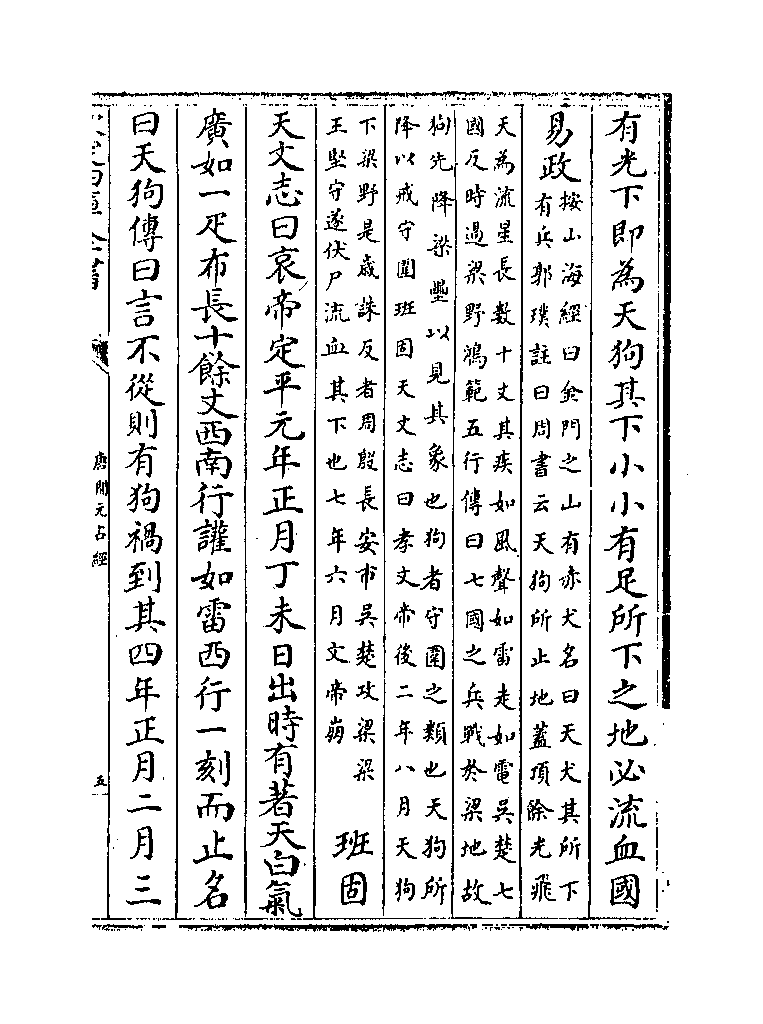 有光下即為天狗其下小小有足所下之地必流血國
易政
按山海經曰金門之山有赤犬名曰天犬其所下
有兵郭璞註曰周書云天狗所止地蓋頃餘光飛
天為流星長數十丈其疾如風聲如雷走如電吳楚七
國反時過梁野鴻範五行傳曰七國之兵戰於梁地故
狗先降梁壘以見其象也狗者守圉之類也天狗所
降以戒守圉班固天文志曰孝文帝後二年八月天狗
下梁野是歲誅反者周殷長安市吳楚攻梁梁
王堅守遂伏尸流血其下也七年六月文帝崩
班固
天文志曰哀帝定平元年正月丁未日出時有著天白氣
廣如一疋布長十餘丈西南行讙如雷西行一刻而止名
曰天狗傳曰言不從則有狗禍到其四年正月二月三
唐開元占經
五